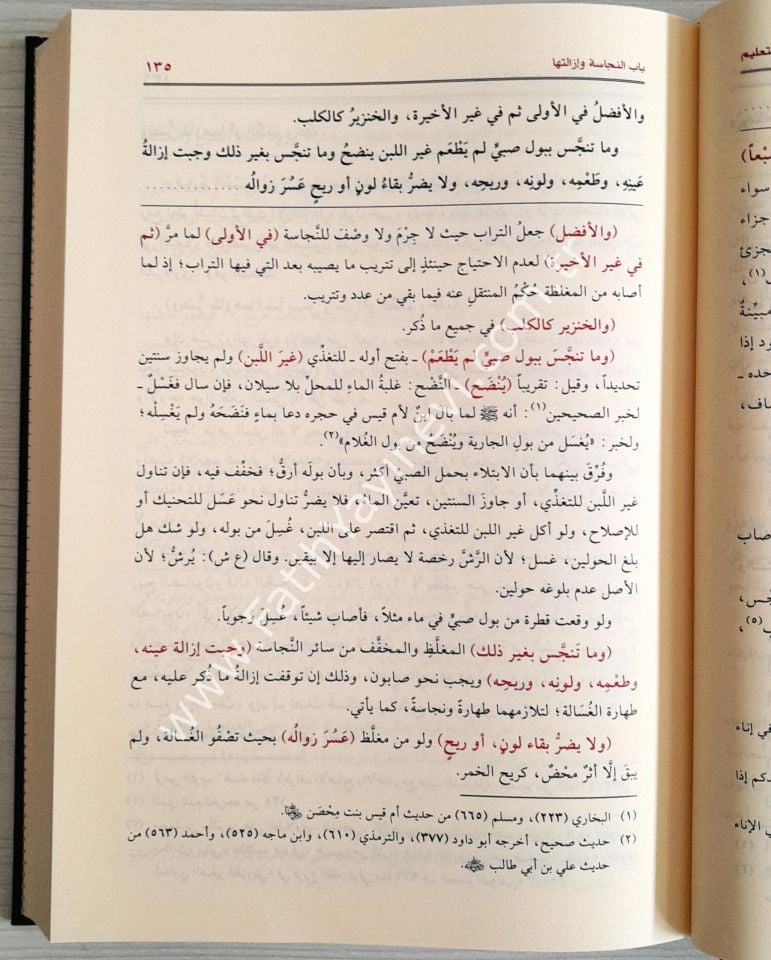 باب النجاسة وإزالتها ١٣٥
والأفضلُ في الأولى ثم في غير الأخيرة، والخنزيرُ كالكلب.
وما تنجَّس ببول صبيٍّ لم يَطْعَم غير اللبن ينضحُ وما تنجَّس بغير ذلك وجبت إزالةُ
عَينِهِ، وطَعْمِه، ولونِه، وريحِه، ولا يضرُّ بقاءُ لونٍ أو ريحٍ عَسُرَ زوالُه ..............
(والأفضل) جعلُ التراب حيث لا جِرْمَ ولا وصْفَ للنَّجاسة (في الأولى) لما مرَّ (ثم
في غير الأخيرة) لعدم الاحتياج حينئذٍ إلى تتريب ما يصيبه بعد التي فيها التراب؛ إذ لما
أصابه من المغلظة حُكْمُ المنتقل عنه فيما بقي من عدد وتتريب.
(والخنزير كالكلب) في جميع ما ذُكر.
(وما تنجَّس ببول صبيٍّ لم يَطْعَمْ) ـ بفتح أوله ـ للتغذِّي (غيرَ اللَّبن) ولم يجاوز سنتين
تحديداً، وقيل: تقريباً (يُنْضَح) ـ النَّضْح: غلبةُ الماءِ للمحلِّ بلا سيلان، فإن سال فغَسْلٌ ـ
لخبر الصحيحين(١): أنه ﷺ لما بالَ ابنٌ لأم قيس في حجره دعا بماءٍ فنَضَحَهُ ولم يَغْسِلْه؛
ولخبر: «يُغسَل من بولِ الجارية ويُنْضَح من بولِ الغُلام»(٢).
وفُرِّق بينهما بأن الابتلاء بحمل الصبيِّ أكثر، وبأن بولَه أرقُّ؛ فخفِّف فيه، فإن تناول
غير اللَّبن للتغذِّي، أو جاوزَ السنتين، تعيَّن الماء، فلا يضرُّ تناول نحو عَسَل للتحنيك أو
للإصلاح، ولو أكل غير اللبن للتغذي، ثم اقتصر على اللبن، غُسِلَ من بوله، ولو شك هل
بلغ الحولين، غسل؛ لأن الرَّشَّ رخصة لا يصار إليها إلا بيقين. وقال (ع ش): يُرشُّ؛ لأن
الأصل عدم بلوغه حولين.
ولو وقعت قطرة من بول صبيٍّ في ماء مثلاً، فأصاب شيئاً، غُسِلَ وجوباً.
(وما تَنجَّس بغير ذلك) المغلظِ والمخفَّف من سائر النَّجاسة (وجبت إزالة عينه،
وطعْمِه، ولونِه، وريحِه) ويجب نحو صابون، وذلك إن توقفت إزالةُ ما ذُكر عليه، مع
طهارة الغُسَالة؛ لتلازمهما طهارةً ونجاسةً، كما يأتي.
(ولا يضرُّ بقاء لونٍ، أو ريحٍ) ولو من مغلَّظ (عَسُرَ زوالُه) بحيث تصْفُو الغُسالة، ولم
يبقَ إلَّا أثرٌ محْضٌ، كريح الخمر.
(١) البخاري (٢٢٣)، ومسلم (٦٦٥) من حديث أم قيس بنت مِحْصَن
(٢) حديث صحيح، أخرجه أبو داود (٣٧٧)، والترمذي (٦١٠)، وابن ماجه (٥٢٥)، وأحمد (٥٦٣) من
حديث علي بن أبي طالب
www.FatihYayinevi.com.tr